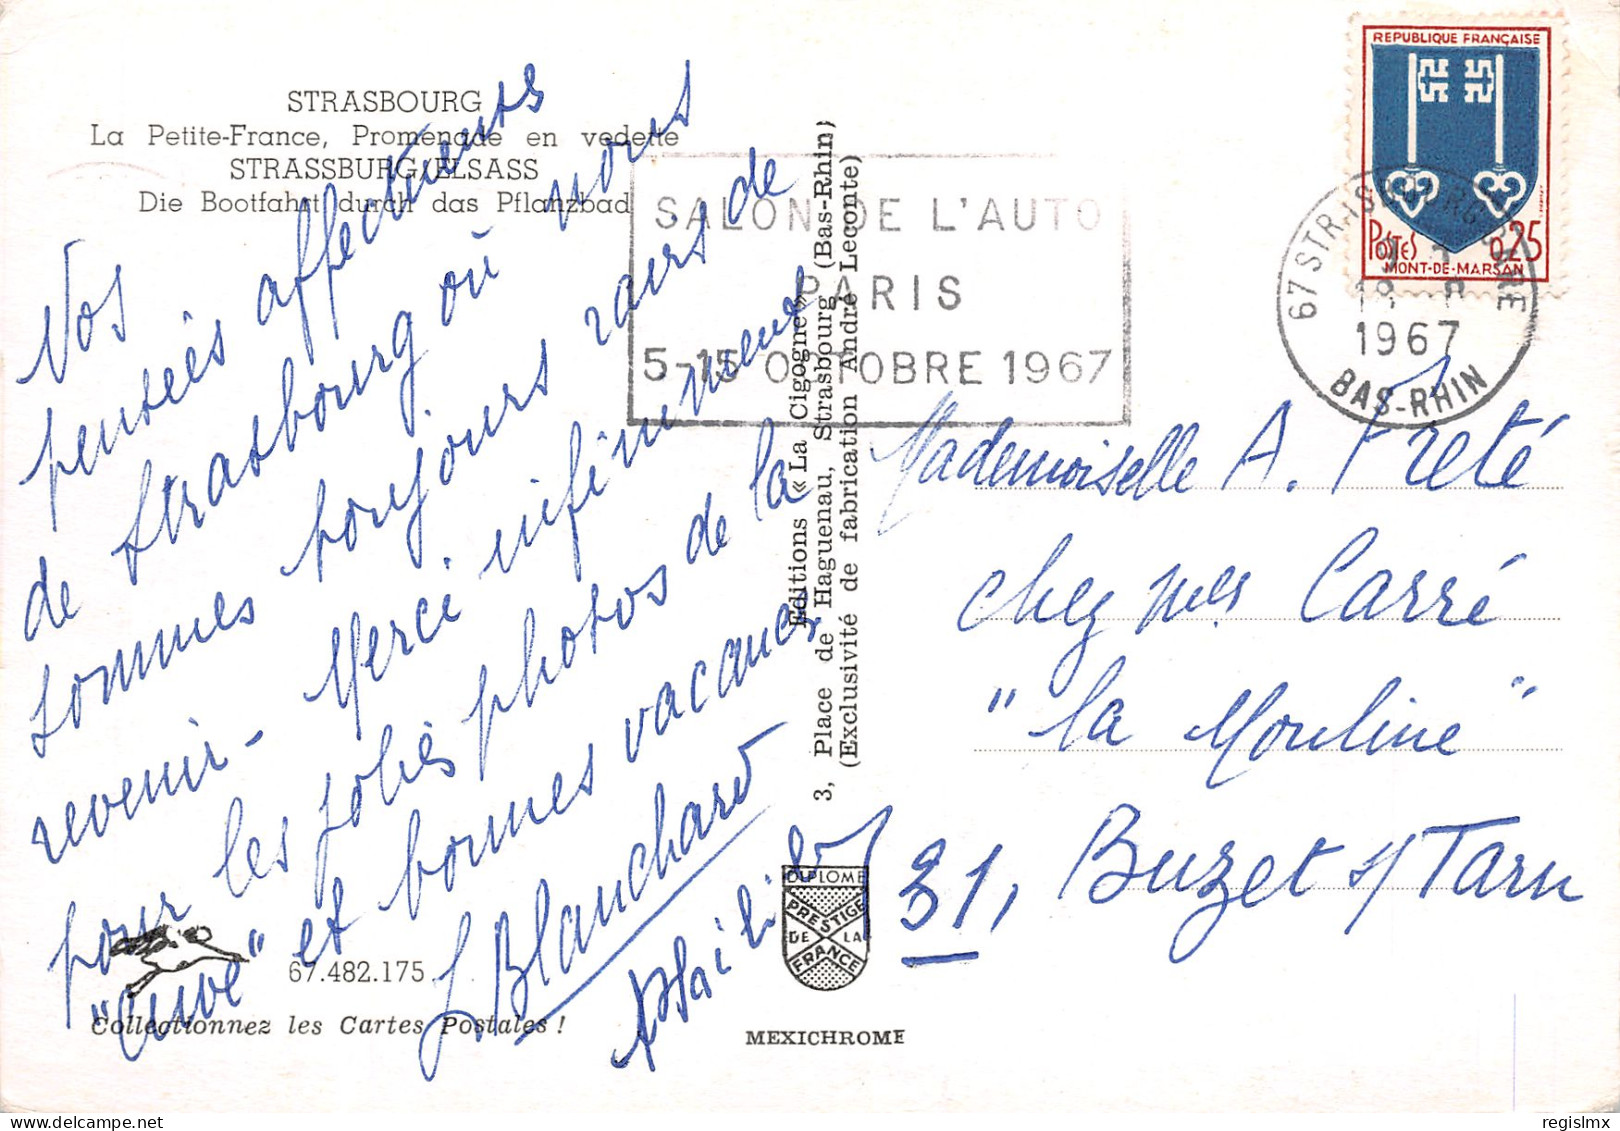 STRASBOURG
La Petite-France, Promenade en vedette
STRASSBURG/ELSASS
Die Bootfahrt durch das Pflanzbad
Nos
pensées affectueuses
de Strasbourg où nous
sommes toujours ravis de
revenir - Merci infiniment
pour les jolies photos de la
"cuve" et bonnes vacances
Blanchard
67.482.175
Collectionnez les Cartes Postales !
Editions « La Cigogne »
3, Place de Haguenau, Strasbourg (Bas-Rhin)
(Exclusivité de fabrication André Leconte)
DIPLOME
PRESTIGE
DE LA
FRANCE
MEXICHROME
SALON DE L'AUTO
PARIS
5-15 OCTOBRE 1967
REPUBLIQUE FRANÇAISE
POSTES 0,25
MONT-DE-MARSAN
67 STRASBOURG GARE
1967
BAS-RHIN
Mademoiselle A. Frété
chez mes Carré
"La Mouline"
31, Buzet s/ Tarn
regislmx